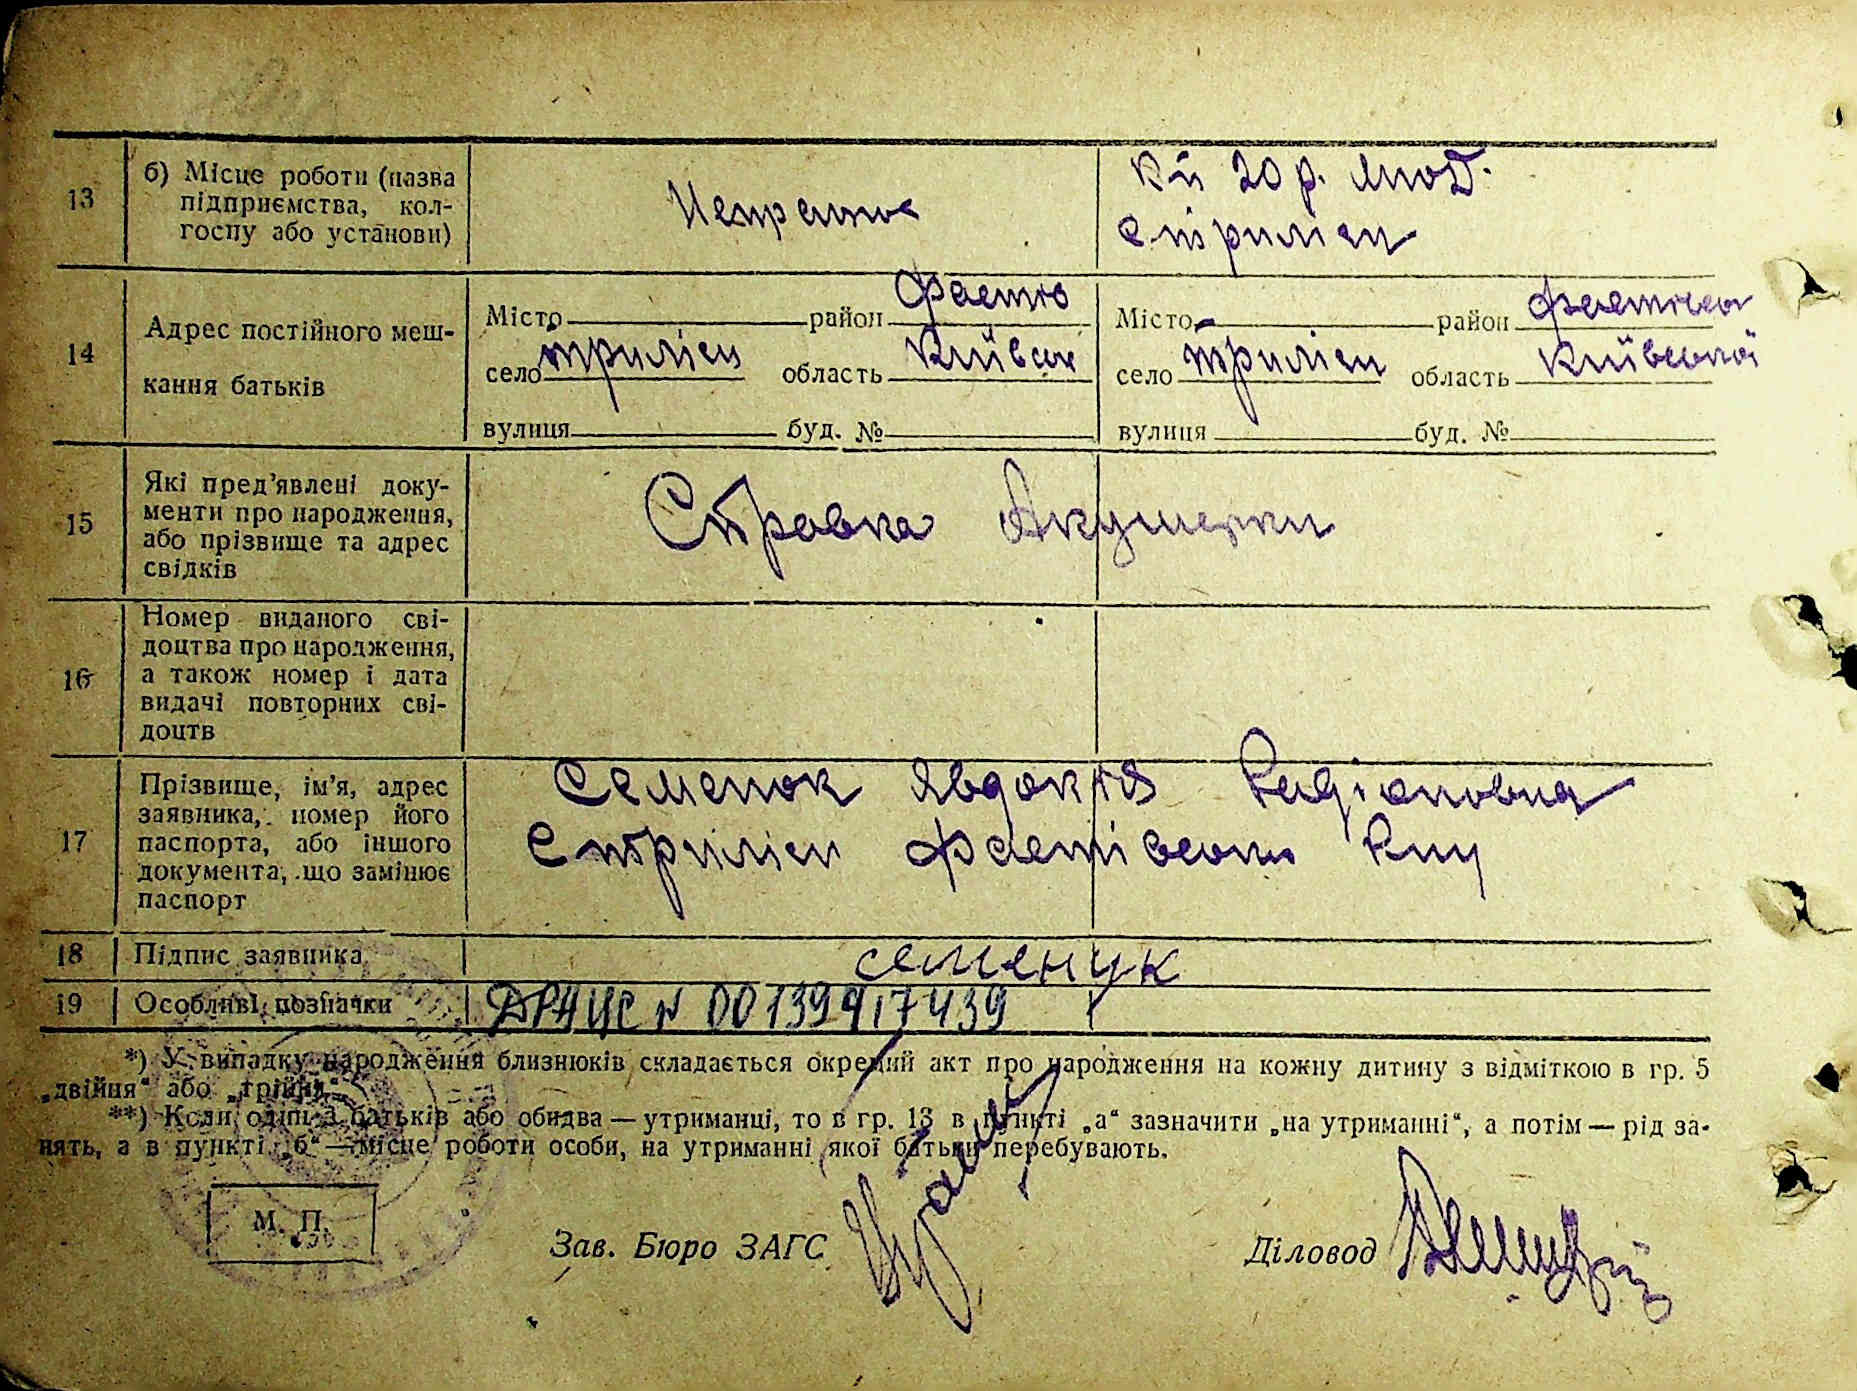 13
б) Місце роботи (назва
підприємства, кол-
госпу або установи)
Кп 20 р. Жовт.
с трилісы
14
Адрес постійного меш-
кання батьків
Місто район Фастів
село триліси область Київськ
вулиця буд. №
Місто район Фастівськ
село триліси область Київської
вулиця буд. №
15
Які пред'явлені доку-
менти про народження,
або прізвище та адрес
свідків
Справка Акушерки
16
Номер виданого сві-
доцтва про народження,
а також номер і дата
видачі повторних сві-
доцтв
17
Прізвище, ім'я, адрес
заявника, номер його
паспорта, або іншого
документа, що замінює
паспорт
Семенюк Явдокія Радіоновна
с триліси Фастівськ
18
Підпис заявника
семенук
19
Особливі позначки
ДРАЦС N 00139917439
*) У випадку народження близнюків складається окремий акт про народження на кожну дитину з відміткою в гр. 5
„двійня“ або „трійня“.
**) Коли один з батьків або обидва — утриманці, то в гр. 13 в пункті „а“ зазначити „на утриманні“, а потім — рід за-
нять, а в пункті „б“ — місце роботи особи, на утриманні якої батьки перебувають.
М. П.
Зав. Бюро ЗАГС
Діловод